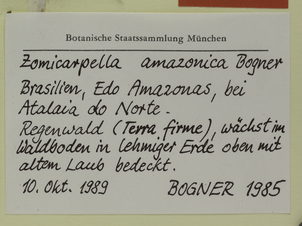 Botanische Staatssammlung München
Zomicarpella amazonica Bogner
Brasilien, Edo Amazonas, bei
Atalaia do Norte.
Regenwald (Terra firme), wächst im
Waldboden in lehmiger Erde oben mit
altem Laub bedeckt.
10. Okt. 1989 BOGNER 1985